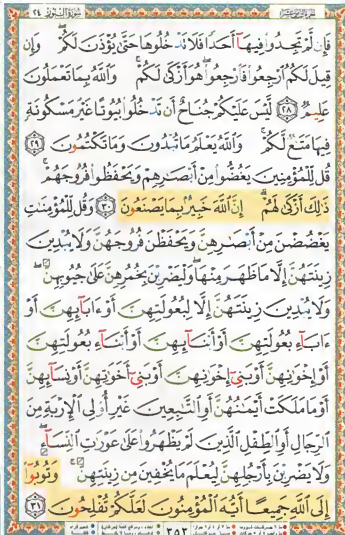 سُورَةُ النُّورِ ٢٤
فَإِن لَّمْ تَجِدُوا۟ فِيهَآ أَحَدًا فَلَا تَدْخُلُوهَا حَتَّىٰ يُؤْذَنَ لَكُمْ ۖ وَإِن
قِيلَ لَكُمُ ٱرْجِعُوا۟ فَٱرْجِعُوا۟ ۖ هُوَ أَزْكَىٰ لَكُمْ ۚ وَٱللَّهُ بِمَا تَعْمَلُونَ
عَلِيمٌ ٢٨ لَّيْسَ عَلَيْكُمْ جُنَاحٌ أَن تَدْخُلُوا۟ بُيُوتًا غَيْرَ مَسْكُونَةٍ
فِيهَا مَتَـٰعٌ لَّكُمْ ۚ وَٱللَّهُ يَعْلَمُ مَا تُبْدُونَ وَمَا تَكْتُمُونَ ٢٩
قُل لِّلْمُؤْمِنِينَ يَغُضُّوا۟ مِنْ أَبْصَـٰرِهِمْ وَيَحْفَظُوا۟ فُرُوجَهُمْ ۚ
ذَٰلِكَ أَزْكَىٰ لَهُمْ ۗ إِنَّ ٱللَّهَ خَبِيرٌۢ بِمَا يَصْنَعُونَ ٣٠ وَقُل لِّلْمُؤْمِنَـٰتِ
يَغْضُضْنَ مِنْ أَبْصَـٰرِهِنَّ وَيَحْفَظْنَ فُرُوجَهُنَّ وَلَا يُبْدِينَ
زِينَتَهُنَّ إِلَّا مَا ظَهَرَ مِنْهَا ۖ وَلْيَضْرِبْنَ بِخُمُرِهِنَّ عَلَىٰ جُيُوبِهِنَّ ۖ
وَلَا يُبْدِينَ زِينَتَهُنَّ إِلَّا لِبُعُولَتِهِنَّ أَوْ ءَابَآئِهِنَّ أَوْ
ءَابَآءِ بُعُولَتِهِنَّ أَوْ أَبْنَآئِهِنَّ أَوْ أَبْنَآءِ بُعُولَتِهِنَّ
أَوْ إِخْوَٰنِهِنَّ أَوْ بَنِىٓ إِخْوَٰنِهِنَّ أَوْ بَنِىٓ أَخَوَٰتِهِنَّ أَوْ نِسَآئِهِنَّ
أَوْ مَا مَلَكَتْ أَيْمَـٰنُهُنَّ أَوِ ٱلتَّـٰبِعِينَ غَيْرِ أُو۟لِى ٱلْإِرْبَةِ مِنَ
ٱلرِّجَالِ أَوِ ٱلطِّفْلِ ٱلَّذِينَ لَمْ يَظْهَرُوا۟ عَلَىٰ عَوْرَٰتِ ٱلنِّسَآءِ ۖ
وَلَا يَضْرِبْنَ بِأَرْجُلِهِنَّ لِيُعْلَمَ مَا يُخْفِينَ مِن زِينَتِهِنَّ ۚ وَتُوبُوٓا۟
إِلَى ٱللَّهِ جَمِيعًا أَيُّهَ ٱلْمُؤْمِنُونَ لَعَلَّكُمْ تُفْلِحُونَ ٣١
٣٥٣